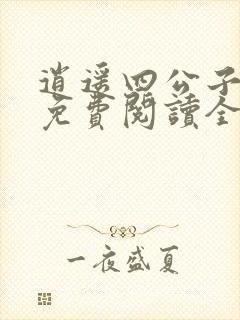 逍遥四公子
免費閱讀全
一夜盛夏